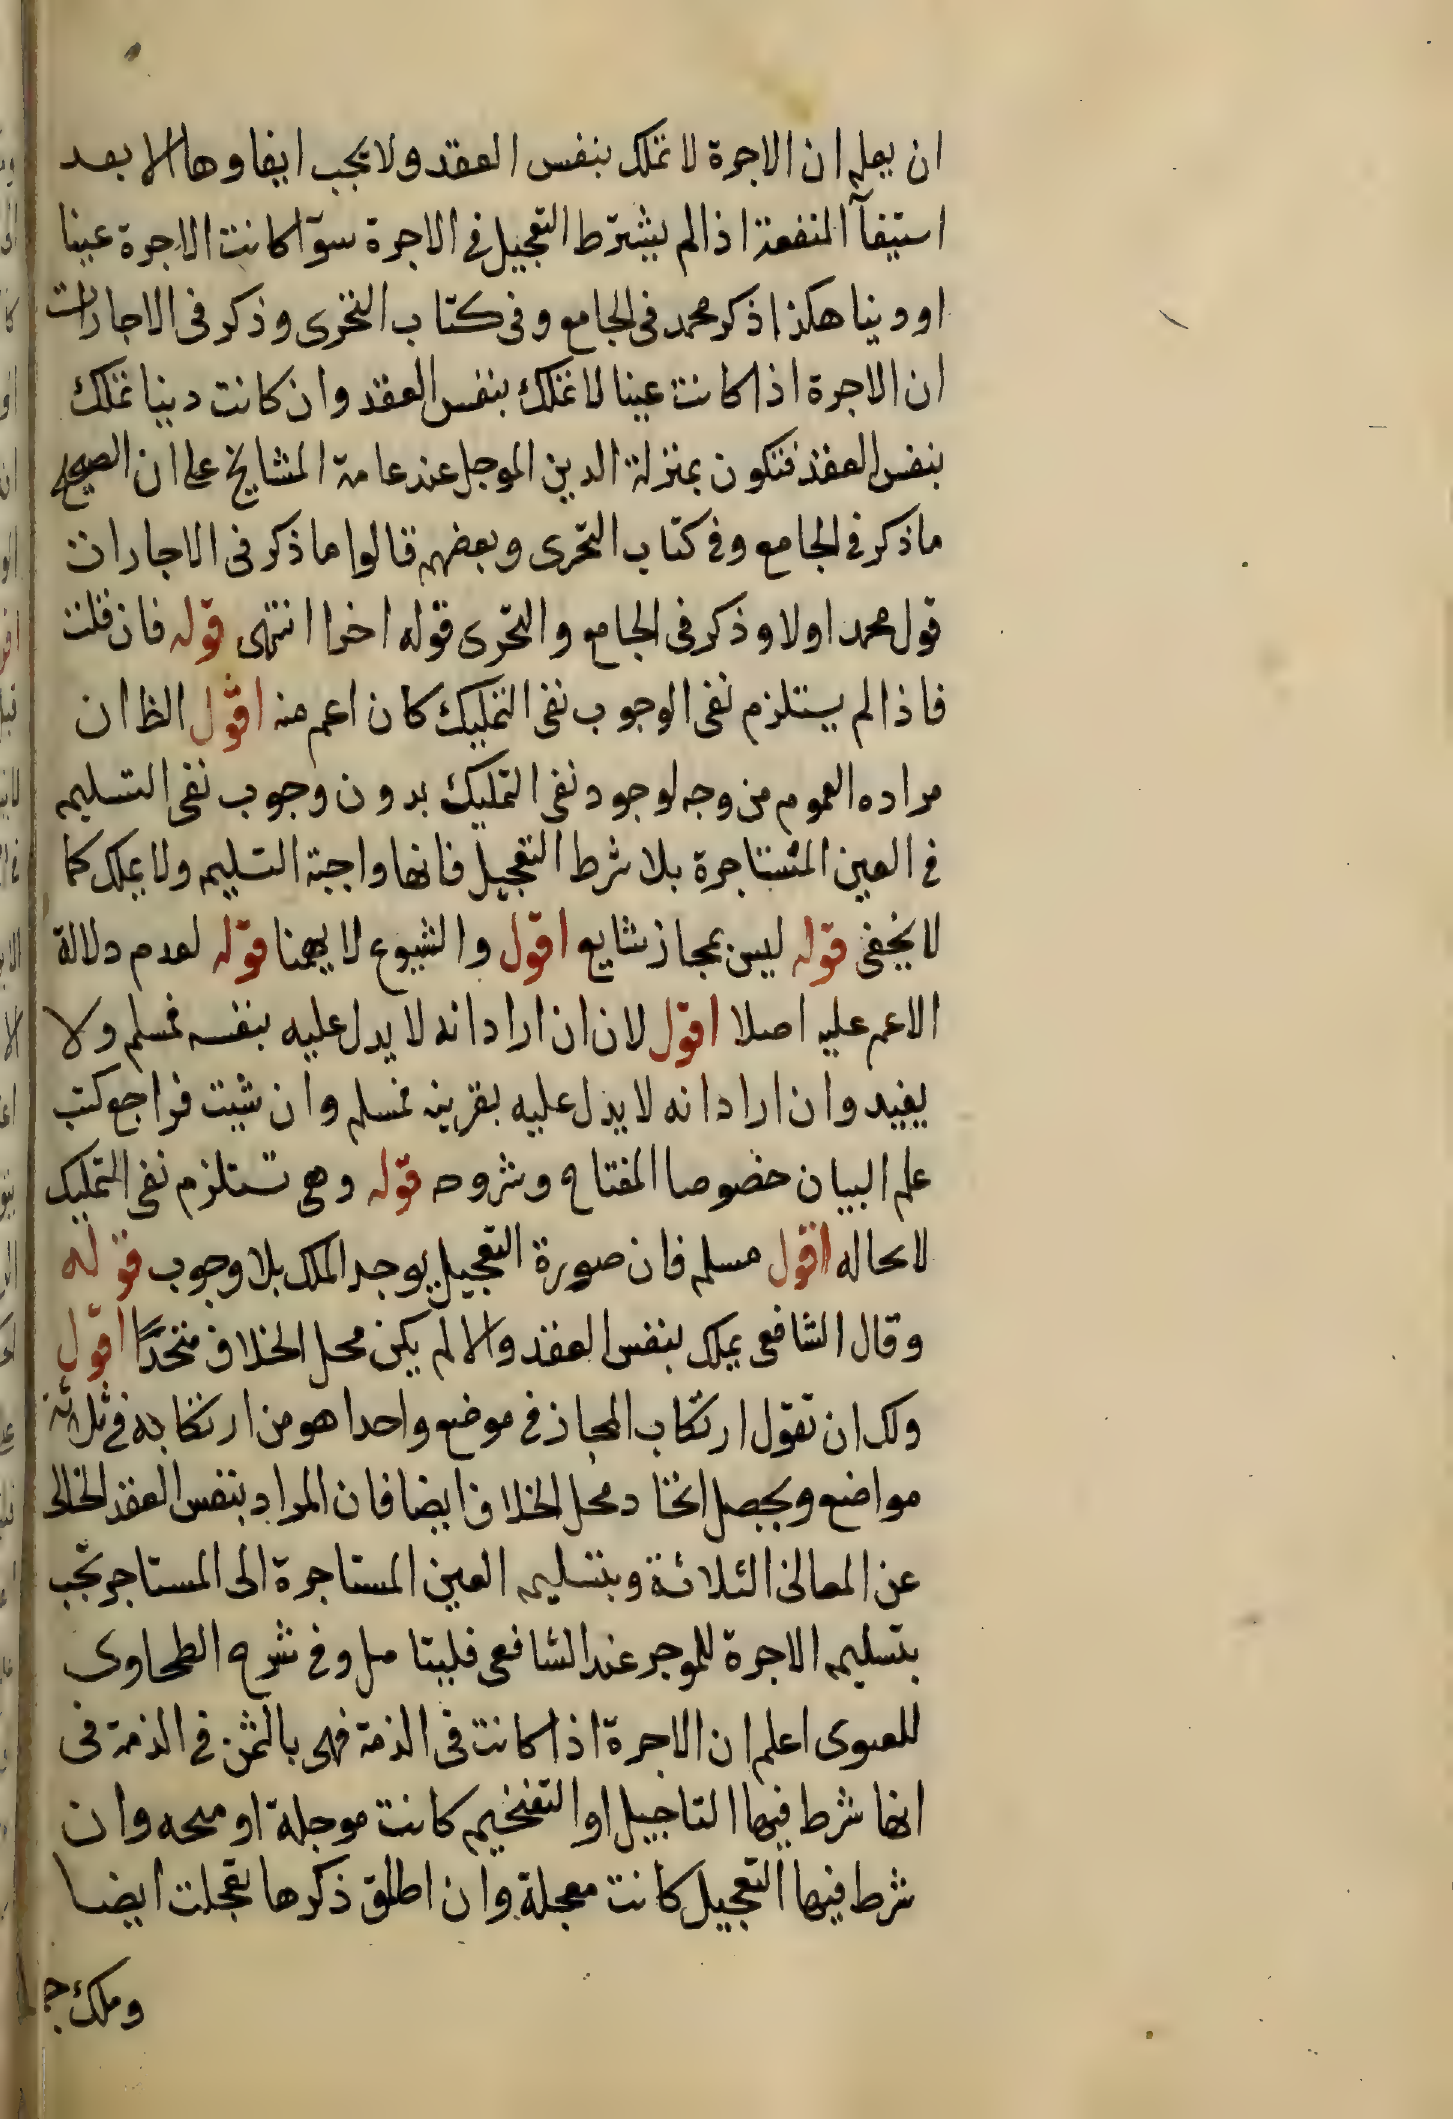 ان يعلم ان الاجرة لا تملك بنفس العقد ولا يجب ايفاوها الا بعد
استيفآ المنفعة اذا لم يشترط التعجيل في الاجرة سوآ كانت الاجرة عينا
او دينا هكذا ذكر محمد في الجامع و في كتاب التحرى و ذكر فى الاجارات
ان الاجرة اذا كانت عينا لا تملك بنفس العقد وان كانت دينا تملك
بنفس العقد فتكون بمنزلة الدين الموجل عند عامة المشايخ على ان الصحيح
ما ذكر في الجامع وفي كتاب التحرى و بعضهم قالوا ما ذكر فى الاجارات
قول محمد اولا و ذكر فى الجامع والتحرى قوله اخرا انتهى قوله فان قلت
فاذا لم يستلزم نفى الوجوب نفى التمليك كان اعم منه اقول الظ ان
مراده العموم من وجه لوجود نفى التمليك بدون وجوب نفى التسليم
في العين المستاجرة بلا شرط التعجيل فانها واجبة التسليم ولا يملك كما
لا يخفى قوله ليس بمجاز شايع اقول والشيوع لا يهمنا قوله لعدم دلالة
الاعم عليه اصلا اقول لان ان اراد انه لا يدل عليه بنفسه فمسلم ولا
يفيد وان اراد انه لا يدل عليه بقرينه فمسلم وان شيت فراجع كتب
علم البيان خصوصا المفتاح وشروحه قوله وهى تستلزم نفى التمليك
لا محاله اقول مسلم فان صورة التعجيل يوجد الملك بلا وجوب قوله
وقال الشافعى يملك بنفس العقد والا لم يكن محل الخلاف متحدًا اقول
ولك ان تقول ارتكاب المجاز في موضع واحد اهو من ارتكابه في ثلاثة
مواضع ويحصل اتحاد محل الخلاف ايضا فان المراد بنفس العقد الخالى
عن المعانى الثلاثة وبتسليم العين المستاجرة الى المستاجر يجب
بتسليم الاجرة للموجر عند الشافعى فليتامل وفي شرح الطحاوى
اعلم ان الاجرة اذا كانت فى الذمة فهى بالثمن في الذمة فى
انها شرط فيها التاجيل او كانت موجلة او منجمه وان
شرط فيها التعجيل كانت معجلة وان اطلق ذكرها تعجلت ايضا
وملك